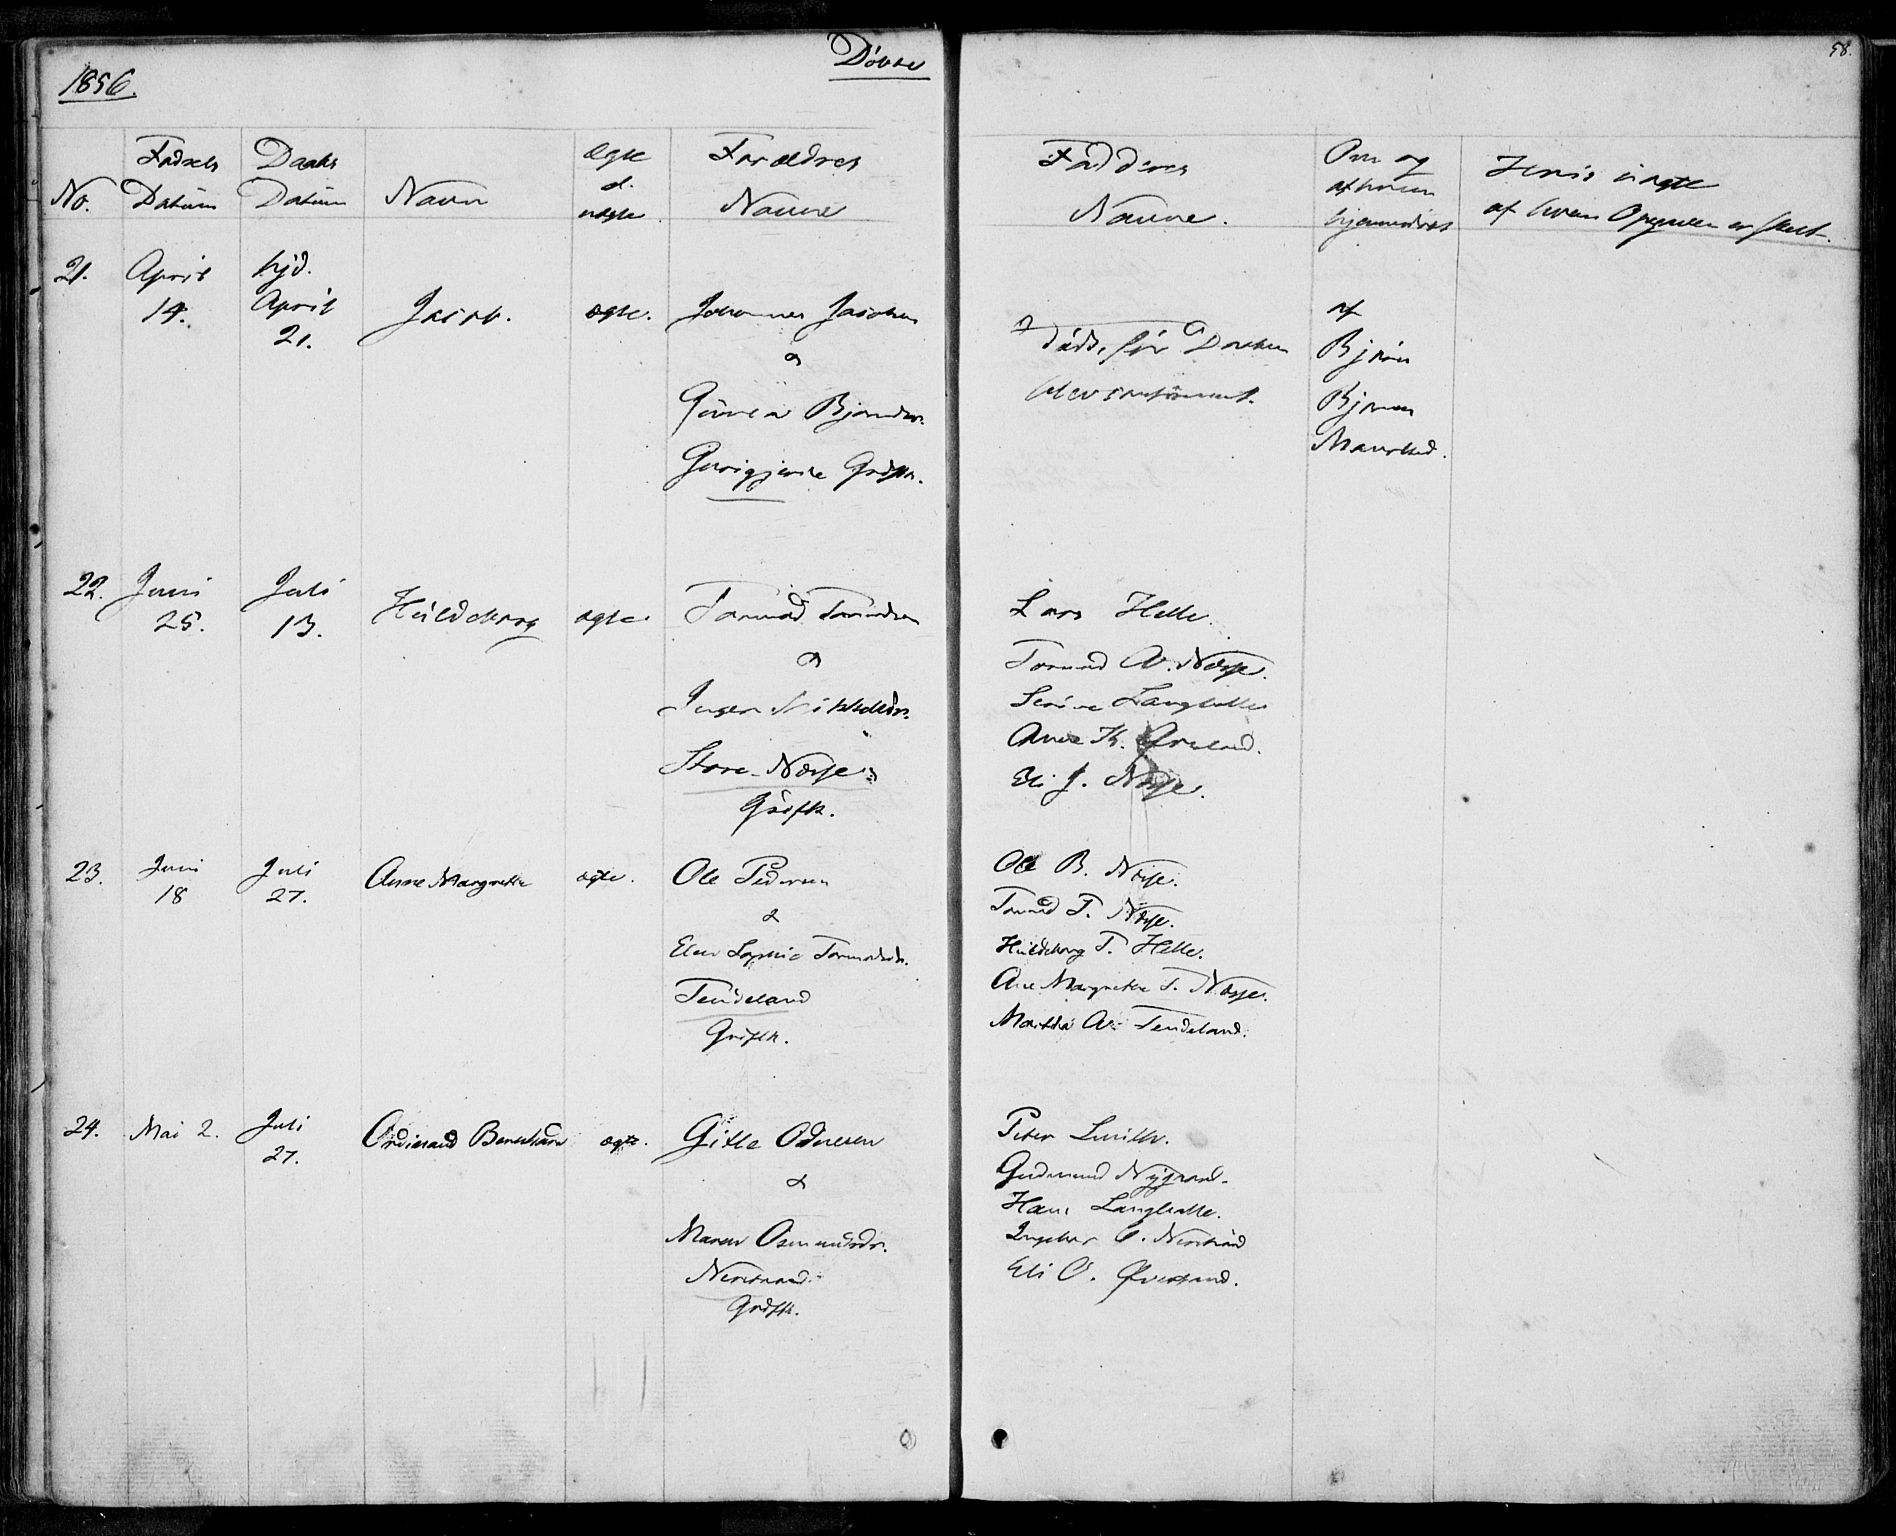 1856.
Døbte
58.
No.
Fødsels Datum
Daabs Datum
Navn
ægte el. uægte.
Forældres Navne
Fadderes Navne.
Om og af hvem hjemmedøbt
Hvis uægte af hvem Opgaven er skeet.
21.
April 14.
hjd. April 21.
Jacob.
ægte.
Johannes Jacobsen
&
Bjørnsdr.
Grdfk.
Død, før Daaben blev
af
Bjørn
22.
Juni 25.
Juli 13.
Huldeborg
ægte.
Tormod Tormodsen
&
Inger Mikkelsdr.
Store-Nærse
Grdfk.
Lars Helle.
Tormod A. Nærse.
Serine Langhelle
Anne K.
Eli J. Nærse.
23.
Juni 18
Juli 27.
Anne Margrethe
ægte.
Ole Pedersen
&
Elen Sophie Tormodsdr.
Tendeland
Grdfk.
Ole B. Nærse.
Tormod T. Nærse.
Huldeborg T. Helle.
Ane Margrethe T. Nærse.
Martha A. Tendeland.
24.
Mai 2.
Juli 27.
Ordinand
ægte.
Gitle Odnesen
&
Maren Osmundsdr.
Nerstrand
Grdfk.
Peter Smith.
Gudmund
Hans Langhelle.
Ingebor O. Nerstrand
Eli O.